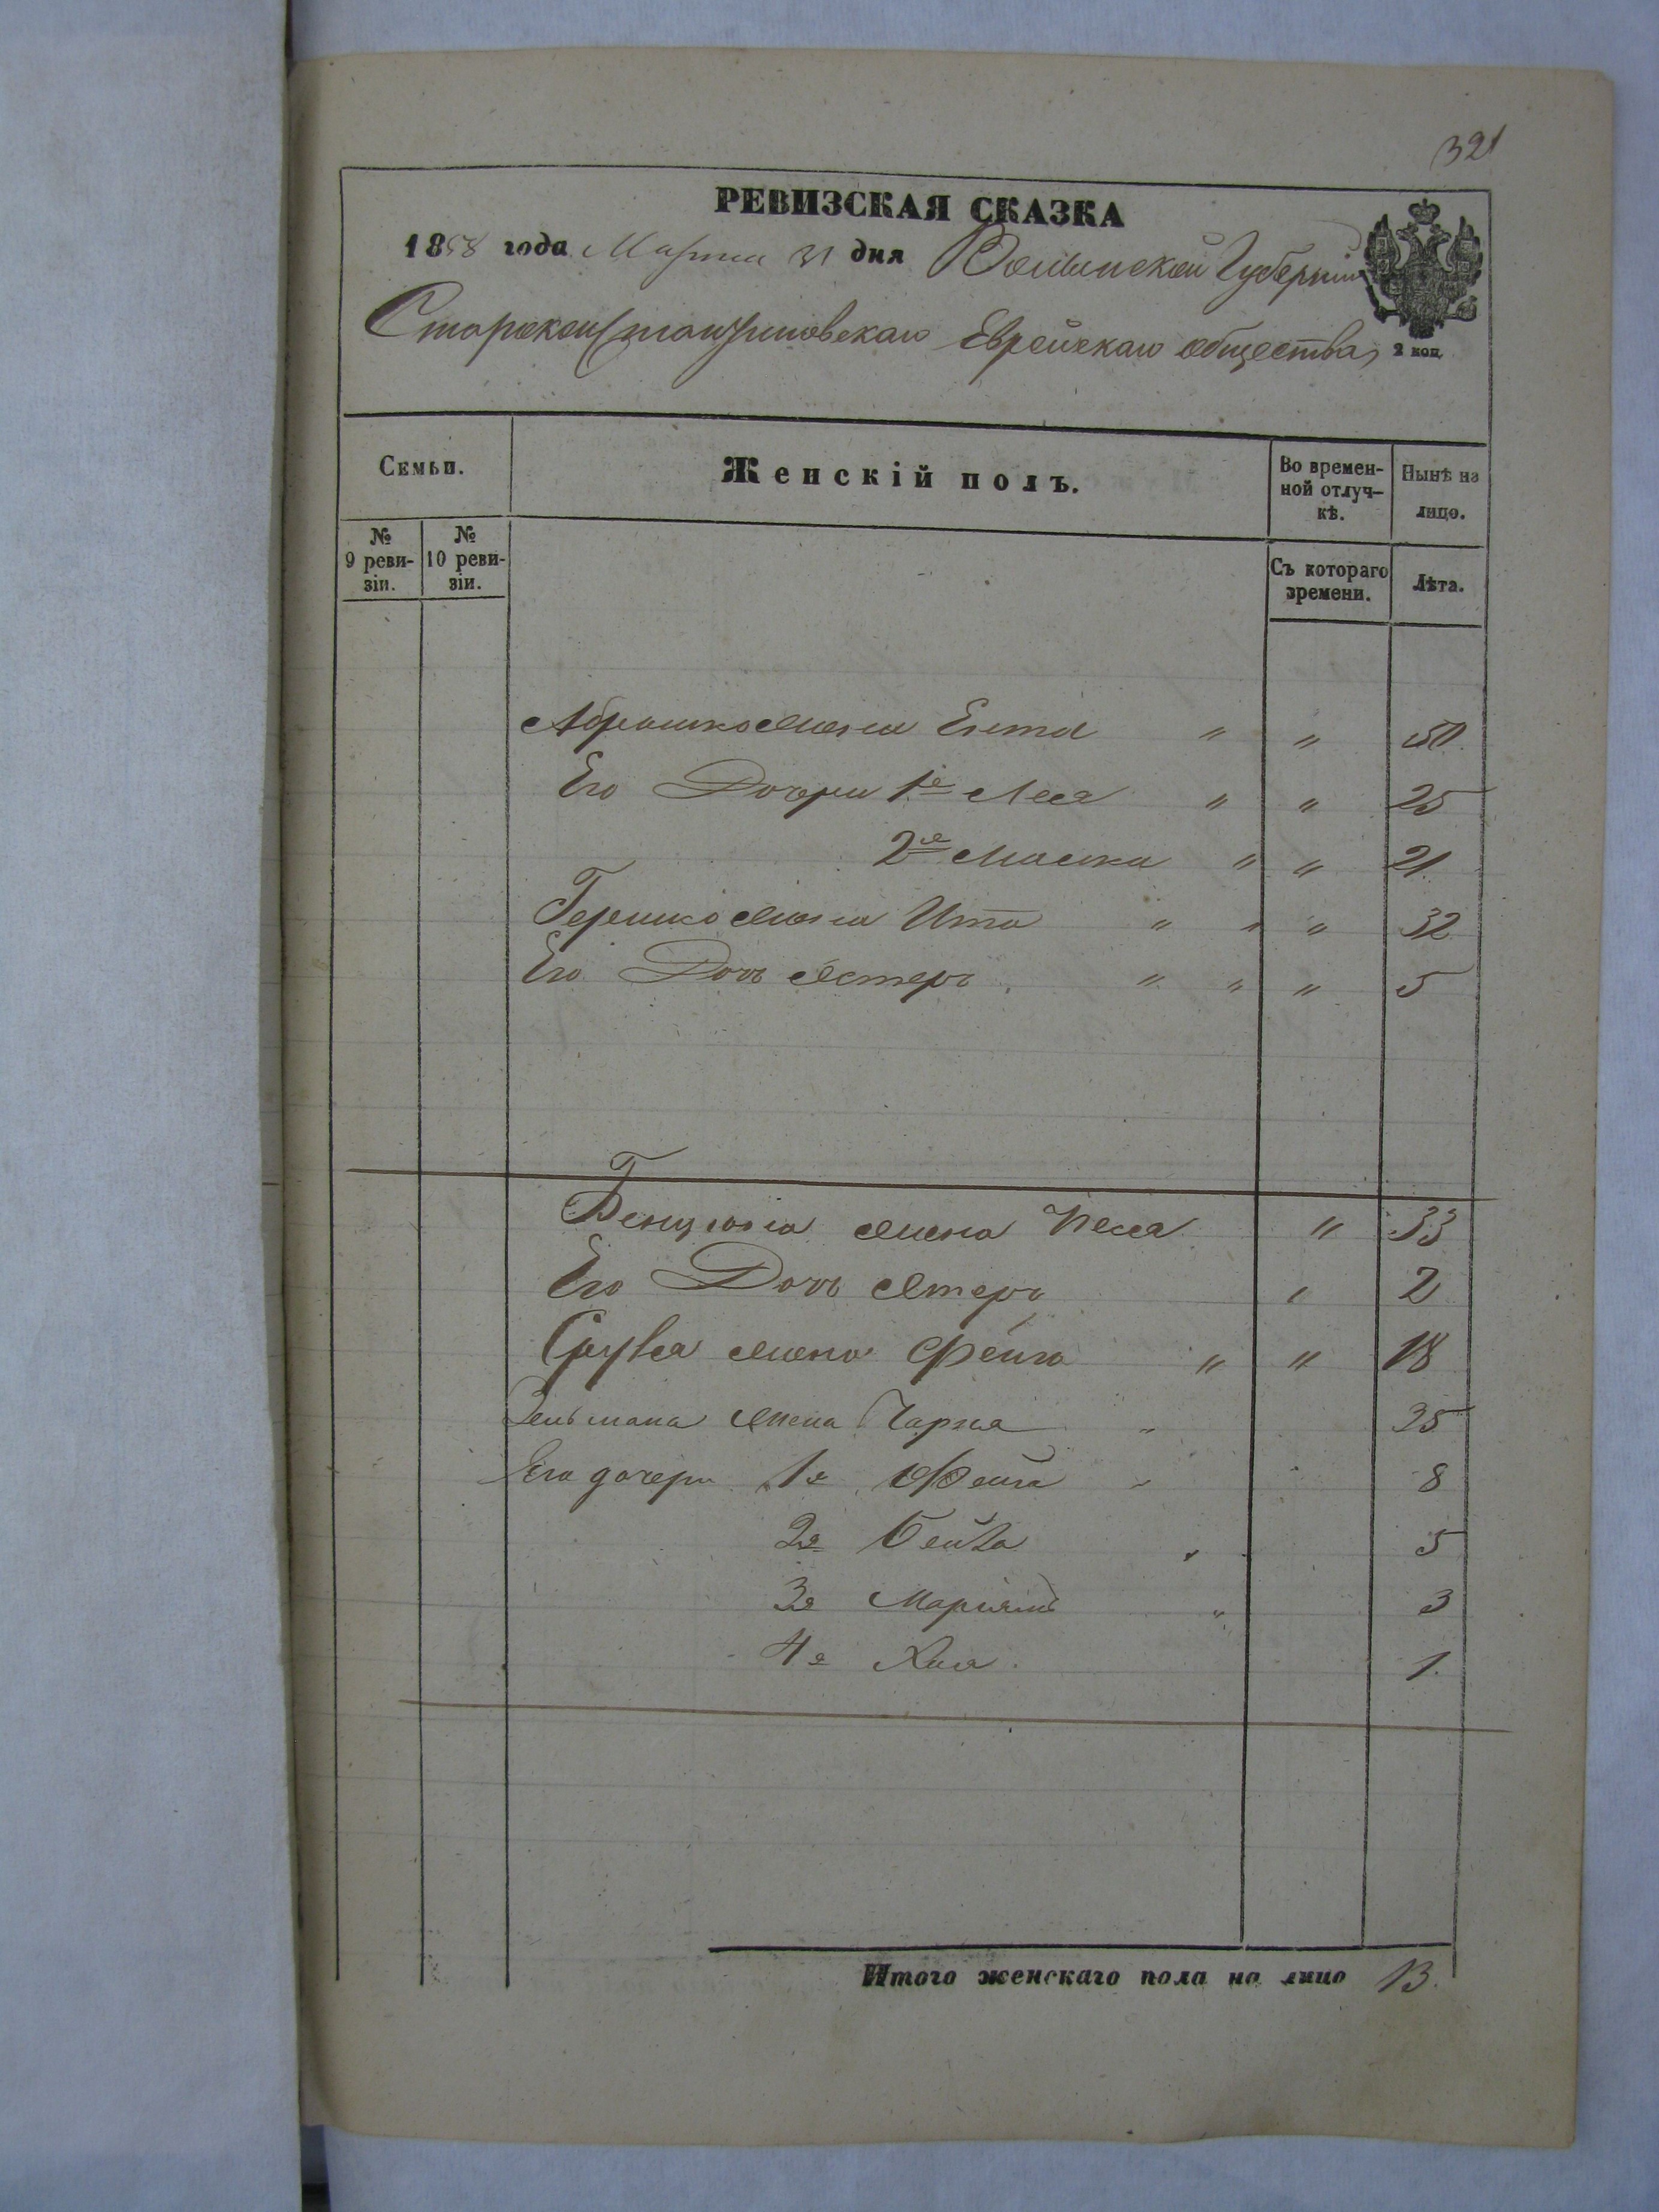 321
РЕВИЗСКАЯ СКАЗКА
1858 года Марта 31 дня Волынской Губерніи
Староконстантиновскаго Еврейскаго общества
2 коп.
Семьи.
Женскій полъ.
Во времен-
ной отлуч-
кѣ.
Нынѣ на
лицо.
№
9 реви-
зіи.
№
10 реви-
зіи.
Съ котораго
времени.
Лѣта.
Абрашко жена Ента " " 50
Его Дочери 1я Лея " " 25
2я " " 21
Гершко жена Ита " " " 32
Его Дочь Естеръ " " " 5
жена Песя " 33
Его Дочь " 2
Срулея жена Фейга " " 18
Зельмана жена Чарна " 35
Его дочери 1я Фейга " 8
2я Бейла " 5
3я Маріямъ " 3
4я Хая 1
Итого женскаго пола на лицо 13.